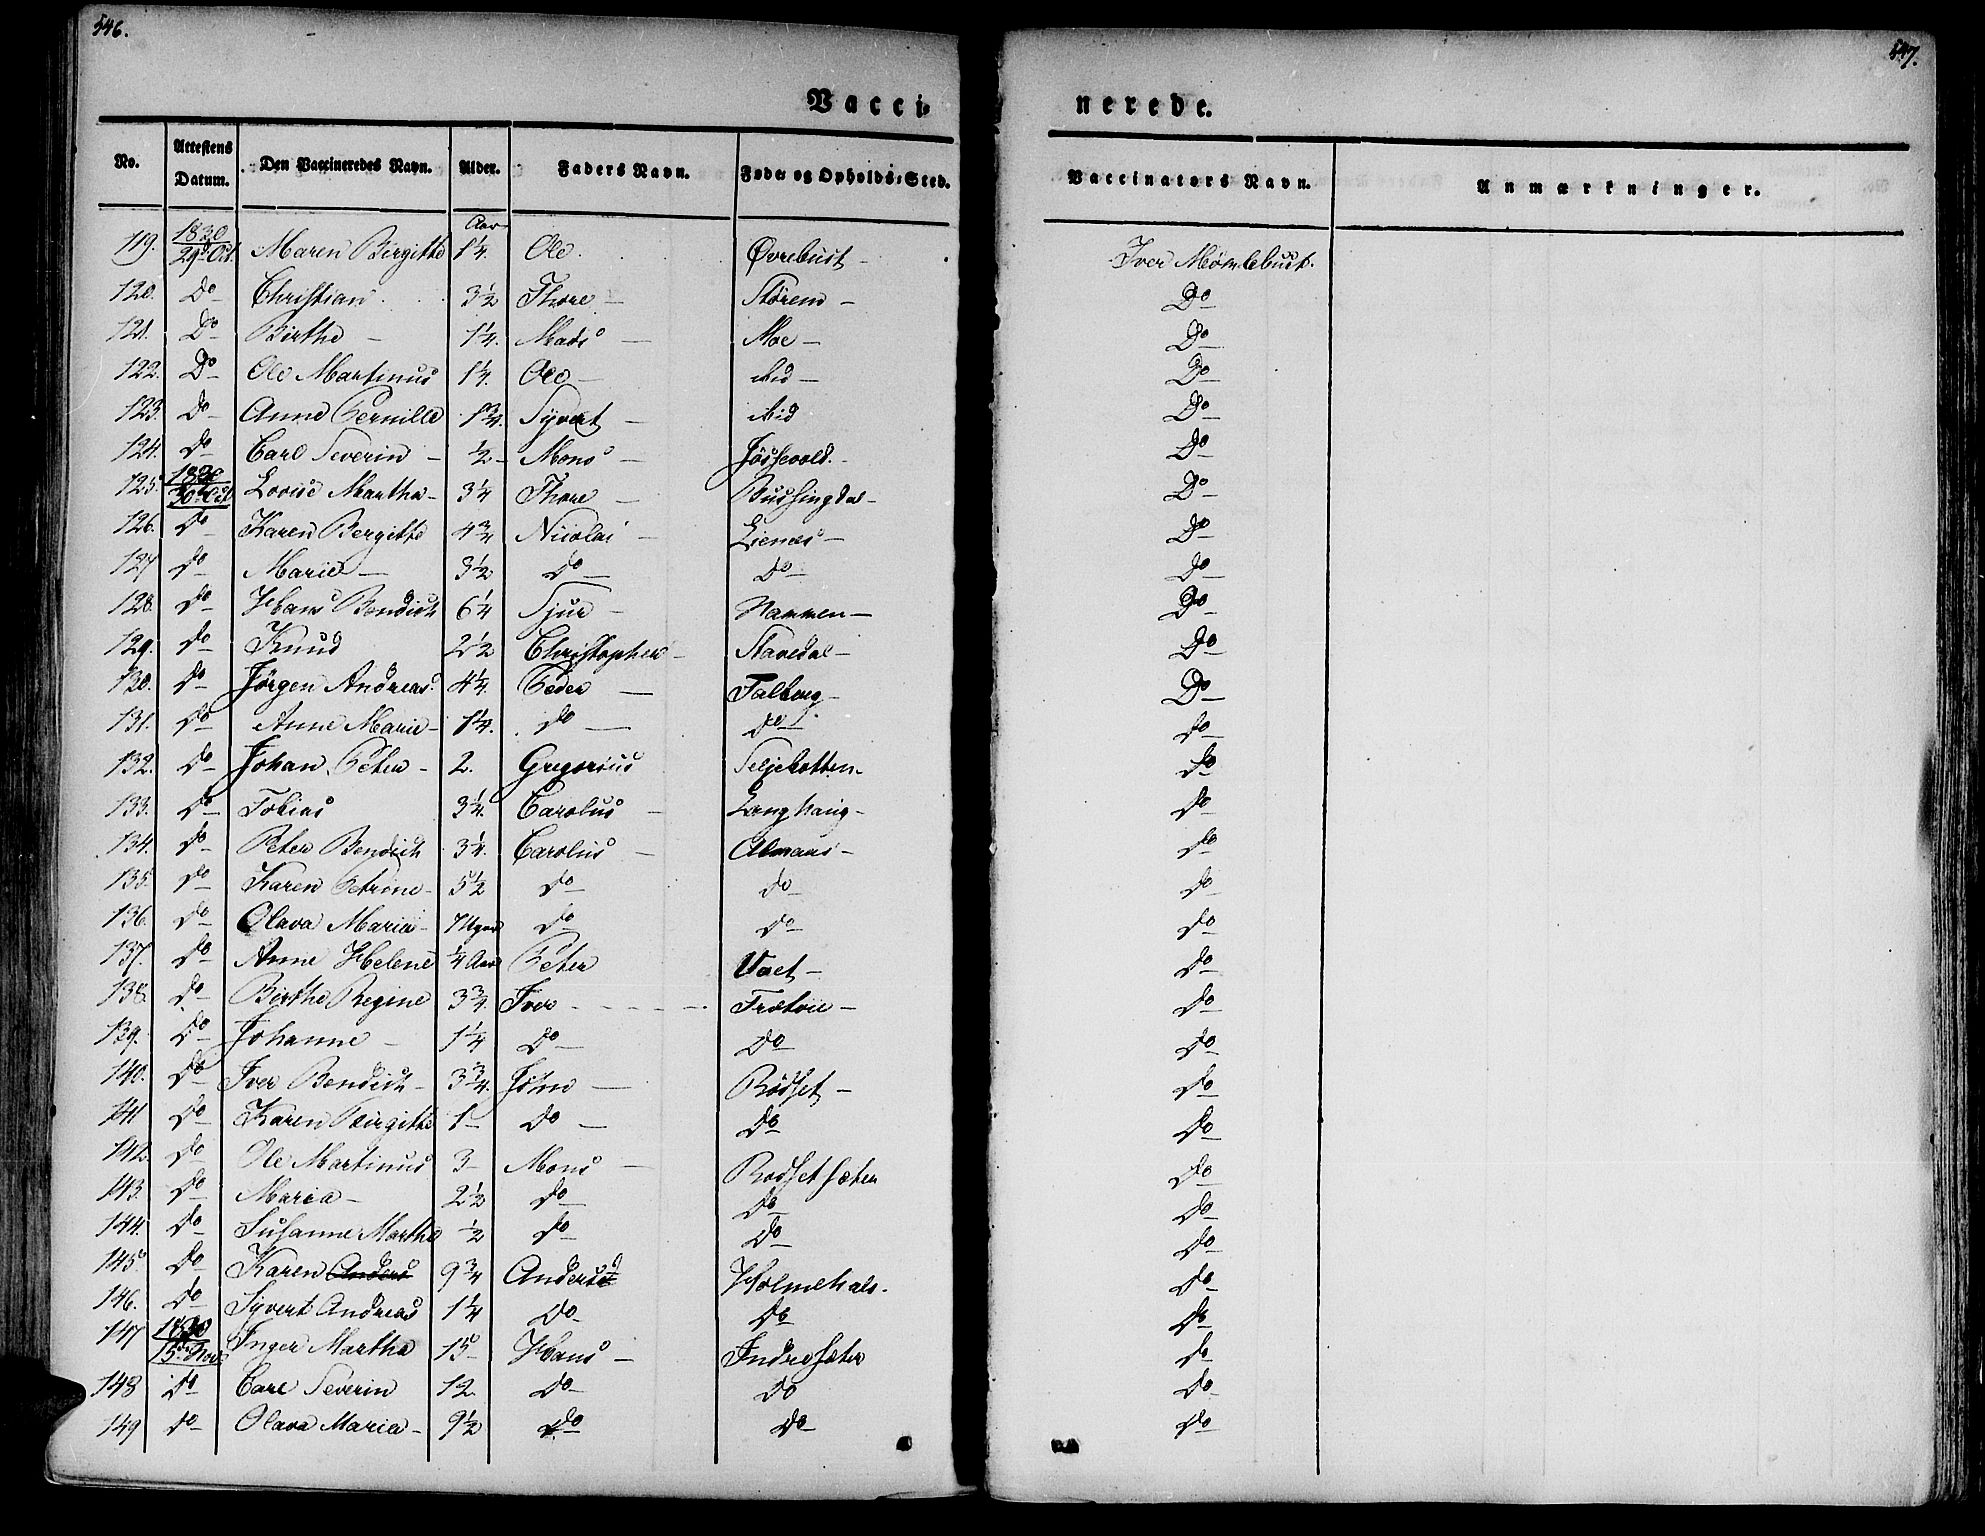 546.
547.
Vacci-
nerede.
No. Attestens Datum. Den Vaccineredes Navn. Alder. Faders Navn. Føde- og Opholds-Sted. Vaccinators Navn. Anmærkninger.
119. 1830 29de Oct. Maren Birgitte Aar 1¼. Ole. Øvrebust - Iver
120. Do Christian. 3½ Thore - Støren - Do
121. Do Birthe - 1¼. Mads - Moe - Do
122. Do Ole Martinus 1¼. Ole - Aid - Do
123. Do Anne Pernille 1¾. Syvert - Aid Do
124. Do Carl Severin - ½ - Mons - Jössevold. - Do
125. 1830 30. Oct Lovise Martha - 3¼ Thore - Bussingdal - Do
126. Do Karen Bergitte 4¾ Nicolai - Lienæs - Do
127 Do Marie - 3½ Do - Do - Do
128. Do Hans Bendich 6¼ Sjur - Hammen - Do
129. Do Knud 2½ Christopher - Stavedal - Do
130. Do Jörgen Andreas. 4¼. Peder - Talberg - Do
131. Do Anne Marie - 1¼. Do - Do Do
132. Do Johan Peter - 2. Gregorius Seljebotten - Do
133. Do Tobias 3¼. Carolus - Langhaug - Do
134. Do Peter Bendich 3¼. Carolus - Almaas - Do
135. Do Karen Petrine - 5½ Do Do Do
136. Do Olava Maria - 7 Uger Do Do Do
137. Do Anne Helene ¼ Aar Peter Vaet - Do
138. Do Birthe Regine 3¾. Iver Trætöie - Do
139. Do Johanne - 1¼ Do Do Do
140. Do Iver Bendich - 3¾. John - Rödset - Do
141 Do Karen Birgitte 1 - Do - Do Do
142. Do Ole Martinus 3 - Mons - Rodset sæter Do
143. Do Maria - 2½ Do Do Do
144. Do Susanne Marthe ½ Do Do Do
145. Do Karen Anders 9¾ Anders Holmehals. Do
146. Do Syvert Andreas 1¼ Do Do Do
147 1830 15de Nov Inger Martha 15 - Hans - Indresæter Do
148 Do Carl Severin 12. Do Do Do
149 Do Olava Maria - 9½ Do Do Do